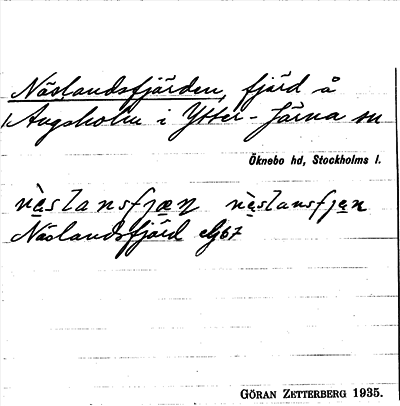 Näslandsfjärden, fjärd å
Ängsholm i Ytter-Järna sn
Öknebo hd, Stockholms l.
nèslansfjæn nèslansfjen
Näslandsfjärd
GÖRAN ZETTERBERG 1935.